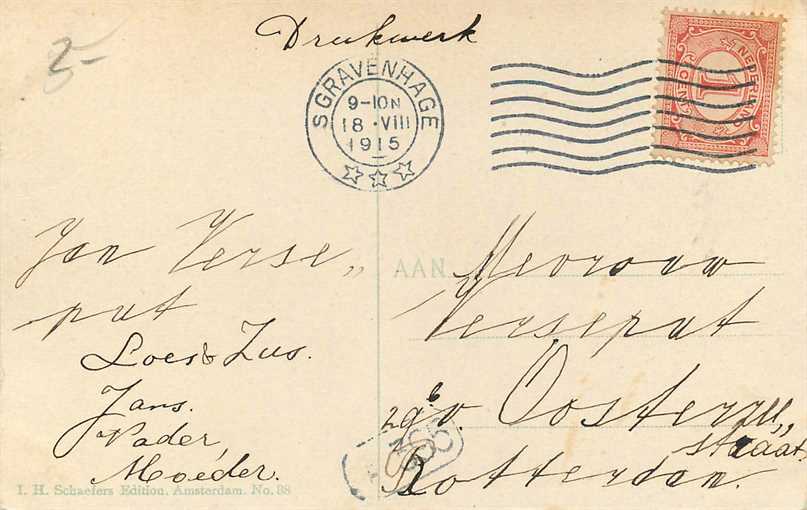 3-
Drukwerk
S GRAVENHAGE
9-10N
18 · VIII
1915
NEDERLAND
1
Jan Verse„
put
Loes & Zus.
Jans.
Vader
Moeder.
AAN
Mevrouw
Verseput
v. Ooster„
straat.
Rotterdam.
I. H. Schaefers Edition, Amsterdam. No. 38